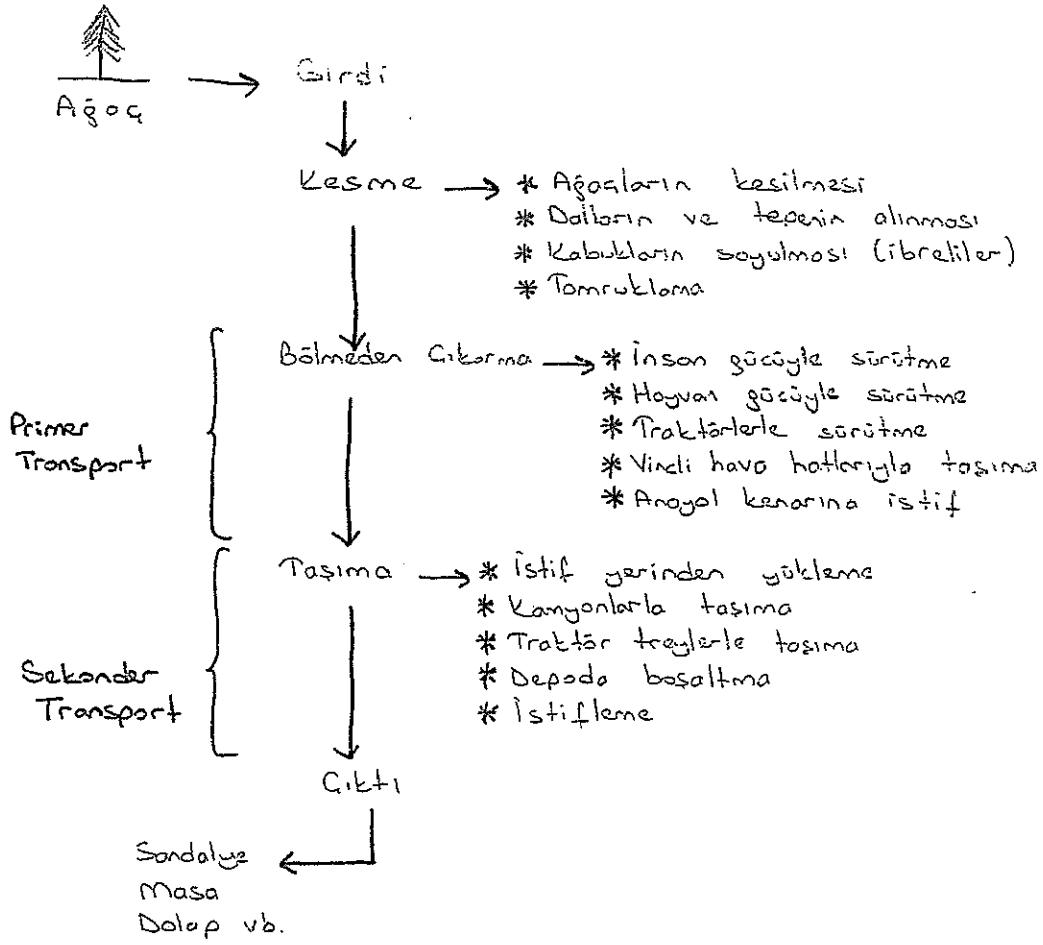 Ağaç
Girdi
Kesme
* Ağaçların kesilmesi
* Dalların ve tepenin alınması
* Kabukların soyulması (ibreliler)
* Tomruklama
Primer
Transport
Bölmeden Çıkarma
* İnsan gücüyle sürütme
* Hayvan gücüyle sürütme
* Traktörlerle sürütme
* Vinçli hava hatlarıyla taşıma
* Anayol kenarına istif
Sekonder
Transport
Taşıma
* İstif yerinden yükleme
* Kamyonlarla taşıma
* Traktör treylerle taşıma
* Depoda boşaltma
* İstifleme
Çıktı
Sandalye
Masa
Dolap vb.